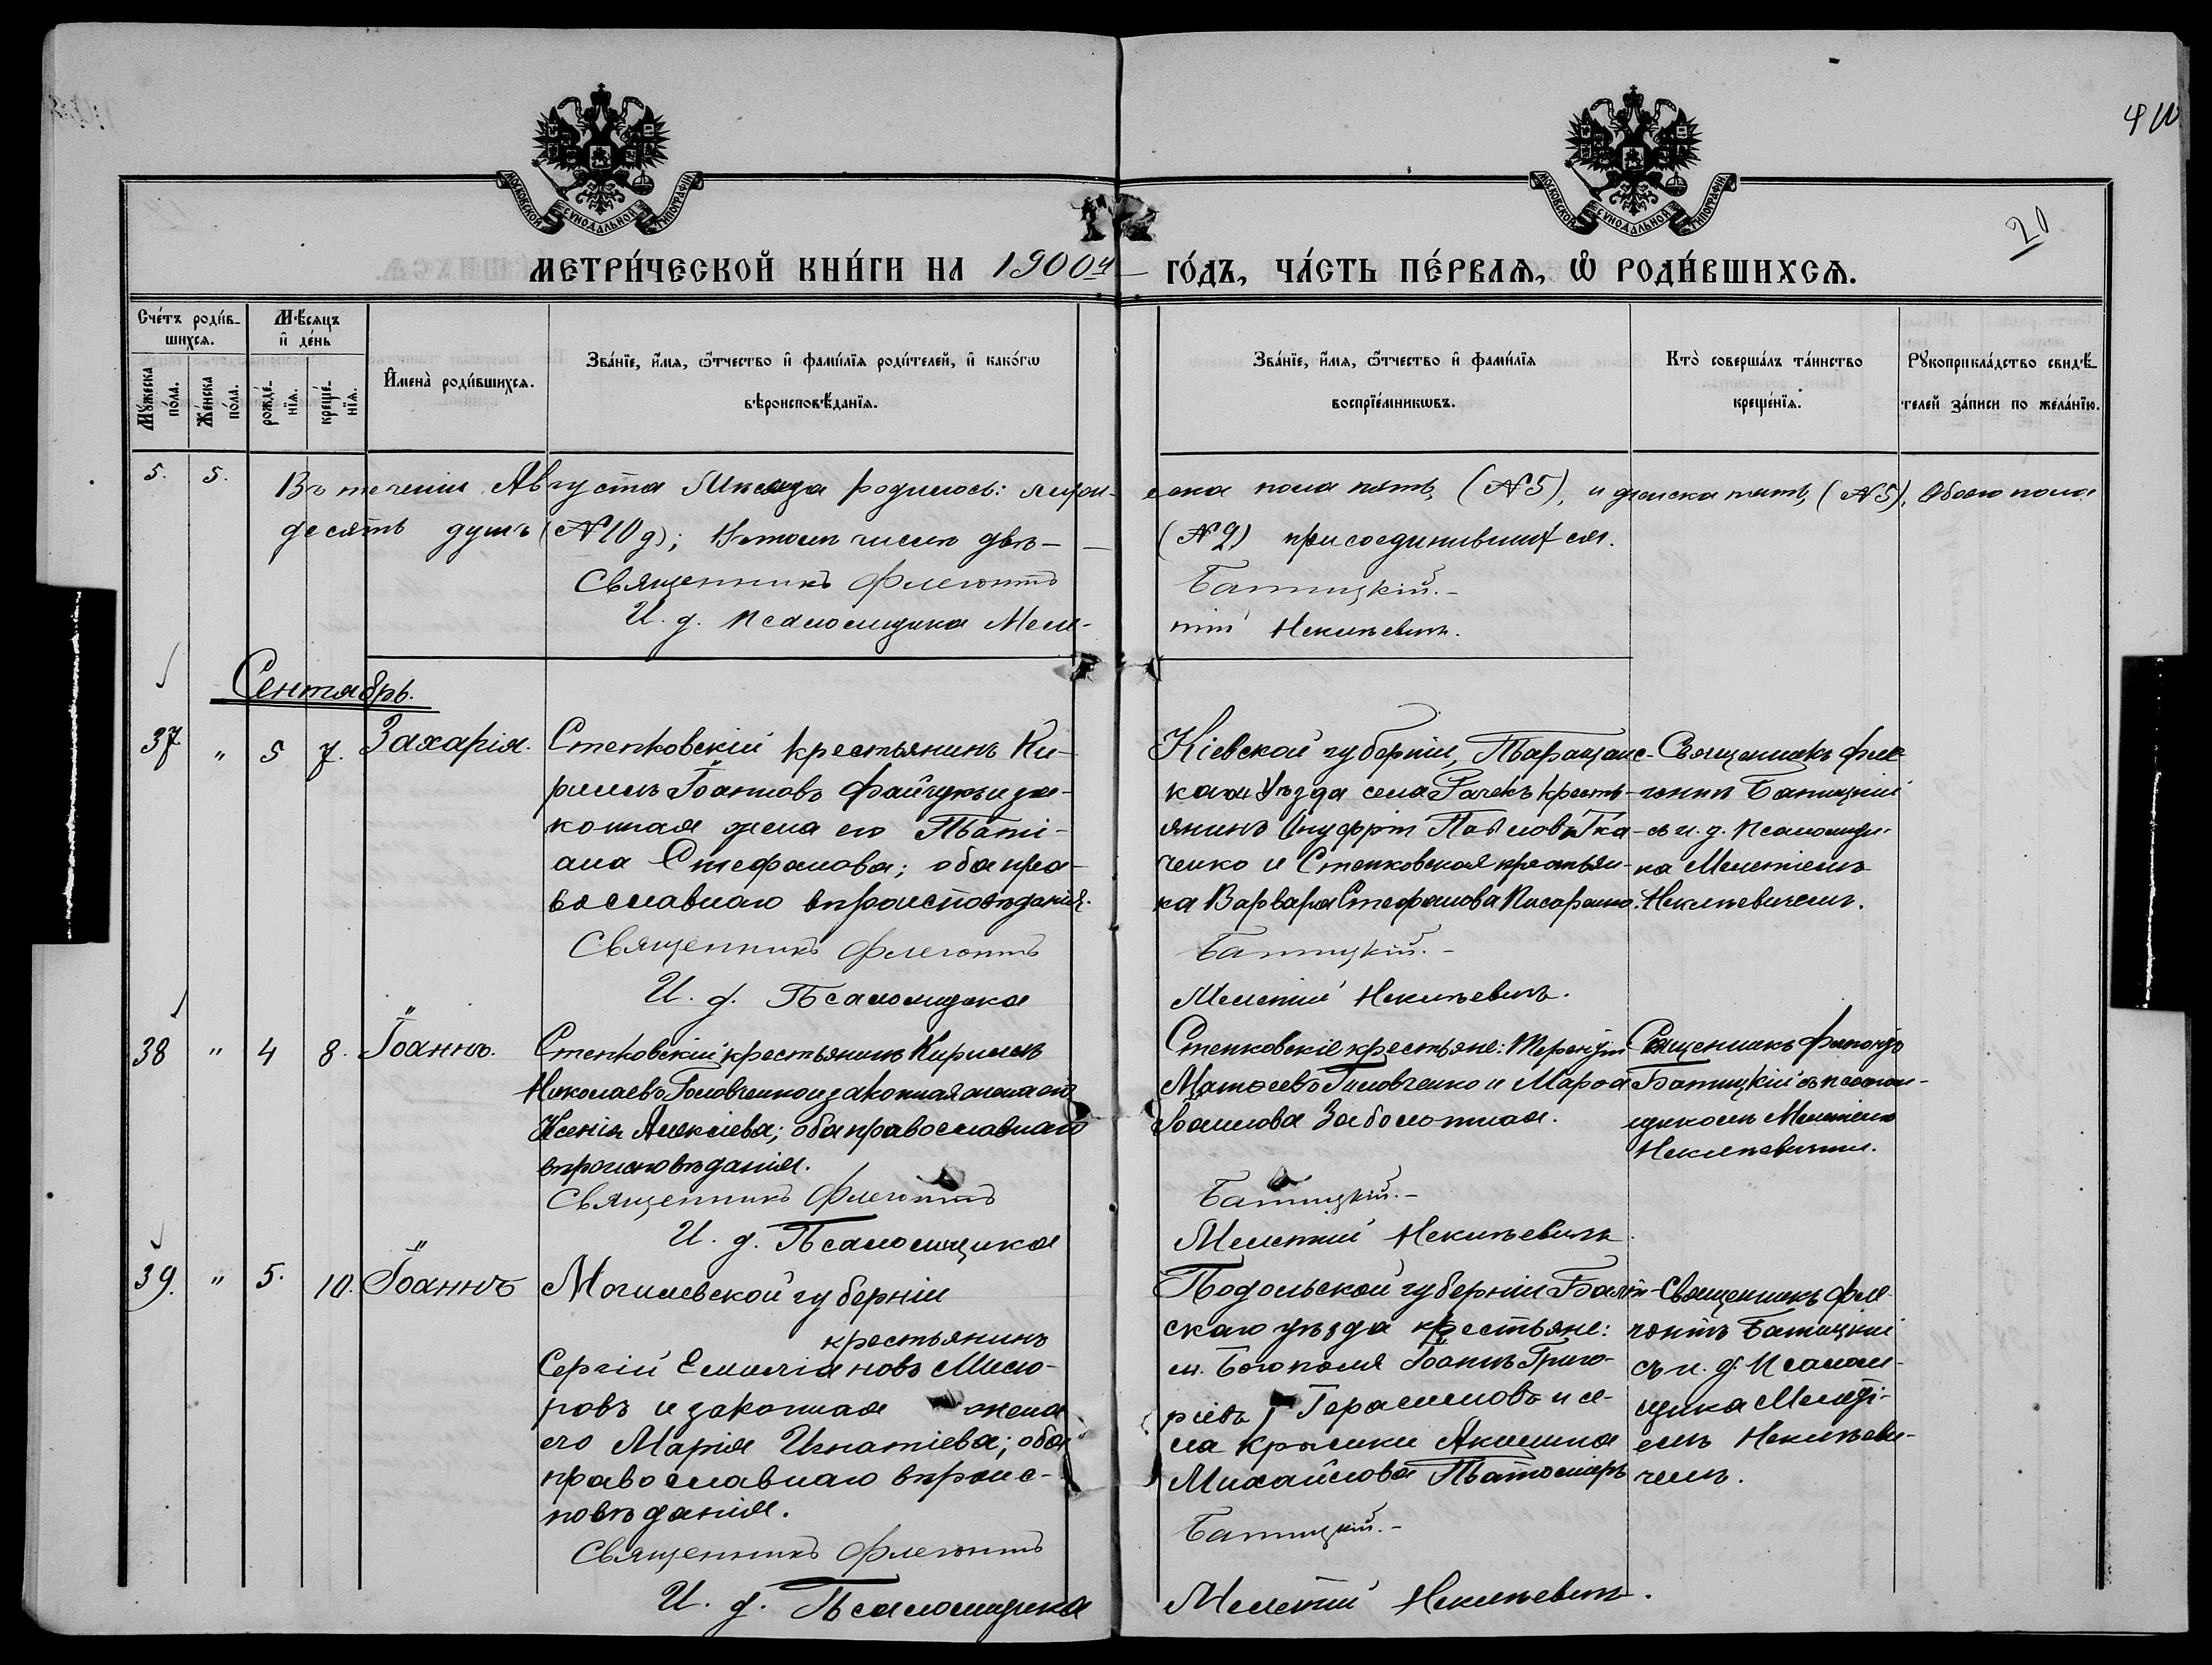 МОСКОВСКОЙ СѴНОДАЛЬНОЙ ТИПОГРАФІИ
МОСКОВСКОЙ СѴНОДАЛЬНОЙ ТИПОГРАФІИ
20
МЕТРИ́ЧЕСКОЙ КНИ́ГИ НА 1900й ГО́ДЪ, ЧА́СТЬ ПЕ́РВАѦ, Ѡ҆ РОДИ́ВШИХСѦ.
Сче́тъ роди́в-
шихсѧ.
Мꙋ́жеска
по́ла.
Же́нска
по́ла.
Мѣ́сѧцъ
и҆ де́нь
рожде́-
нїѧ.
креще́-
нїѧ.
И҆мена̀ роди́вшихсѧ.
Зва́нїе, и҆́мѧ, ѻ҆́тчество и҆ фами́лїѧ роди́телей, и҆ како́гѡ
вѣроисповѣ́данїѧ.
Зва́нїе, и҆́мѧ, ѻ҆́тчество и҆ фами́лїѧ
воспрїе́мникѡвъ.
Кто̀ соверша́лъ та́инство
креще́нїѧ.
Рꙋкоприкла́дство свидѣ́-
телей за́писи по жела́нїю.
5. 5. Въ теченіи Августа Мѣсяца родилось: мужеска пола пять, (№ 5), и женска пять, (№ 5), Обоего пола
десять душъ (№ 10 д); Въ томъ числѣ двѣ — (№ 2) присоединившихся.
Священникъ Флегонтъ Батицкій.-
И. д. псаломщика Мелетій Некилѣевичъ.
Сентябрь.
37 " 5 7. Захарія.
Степковскій крестьянинъ Ки-
риллъ Іоанновъ Файчукъ и за-
конная жена его Таті-
ана Стефанова; оба пра-
вославнаго вѣроисповѣданія.
Кіевской губерніи, Таращанс-
каго Уѣзда села крестъ-
янинъ Онуфрій Павловъ Тка-
ченко и Степковская крестьян-
ка Варвара Стефанова
Священникъ Фле-
гонтъ Батицкій
съ и. д. Псаломщи-
ка Мелетіемъ
Некилѣевичемъ.
Священникъ Флегонтъ Батицкій.-
И. д. Псаломщика Мелетій Некилѣевичъ.
38 " 4 8. Іоаннъ.
Степковскій крестьянинъ Кириллъ
Николаевъ Головченко и законная жена его
Ксенія Алексіева; оба православнаго
вѣроисповѣданія.
Степковскіе крестьяне: Терентій
Матѳеевъ Головченко и Марѳа
Іоаннова Заболотная.
Священникъ Флегонтъ
Батицкій съ псалом-
щикомъ Мелетіемъ
Некилѣевичемъ.
Священникъ Флегонтъ Батицкій.-
И. д. Псаломщика Мелетій Некилѣевичъ.
39. " 5. 10. Іоаннъ
Могилевской губерніи
крестьянинъ
Сергій Емиліановъ
и законная жена
его Марія Игнатіева; оба
православнаго вѣроис-
повѣданія.
Подольской губерніи Балт-
скаго уѣзда крестьяне:
м. Богополя Іоаннъ Григо-
ріевъ Герасимовъ и се-
ла Крымки Акилина
Михайлова
Священникъ Фле-
гонтъ Батицкій
съ и. д. Псалом-
щика Мелеті-
емъ Некилѣеви-
чемъ.
Священникъ Флегонтъ Батицкій.-
И. д. Псаломщика Мелетій Некилѣевичъ.